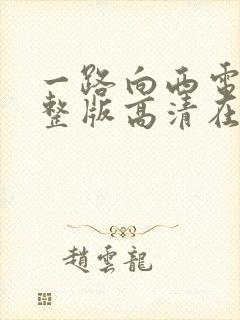 一路向西電
整版高清在
趙雲龍